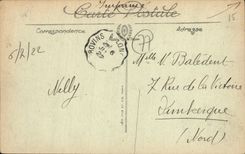 Imprimé
Carte Postale
Correspondance
Adresse
6/2/22
Melle M. Baledent
7 Rue de la Victoire
Dunkerque
(Nord)
Nelly